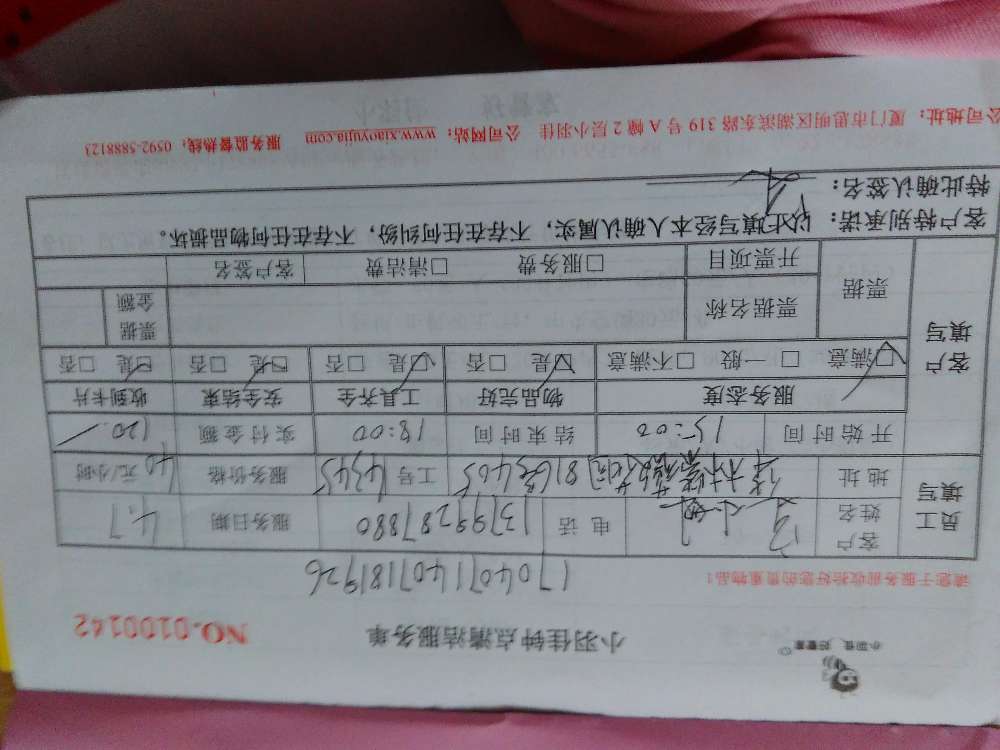 小羽佳，好管家
小羽佳钟点清洁服务单
NO.0100142
请您于服务前收拾好您的贵重物品！
170407140718 1926
员工填写
客户姓名 小姐 电话 13799287880 服务日期 4.7
地址 816号405 工号 4345 服务价格 40元/小时
开始时间 15:00 结束时间 18:00 实付金额 120.
客户填写
服务态度 物品完好 工具齐全 安全结束 收到卡片
☑满意 □一般 □不满意 ☑是 □否 ☑是 □否 ☑是 □否 ☑是 □否
票据 票据名称 票据金额
开票项目 □服务费 □清洁费 客户签名
客户特别承诺：以上填写经本人确认属实，不存在任何纠纷，不存在任何物品损坏。
特此确认签名：
公司地址：厦门市思明区湖滨东路 319 号 A 幢 2 层小羽佳 公司网站：www.xiaoyujia.com 服务监督热线：0592-5888123